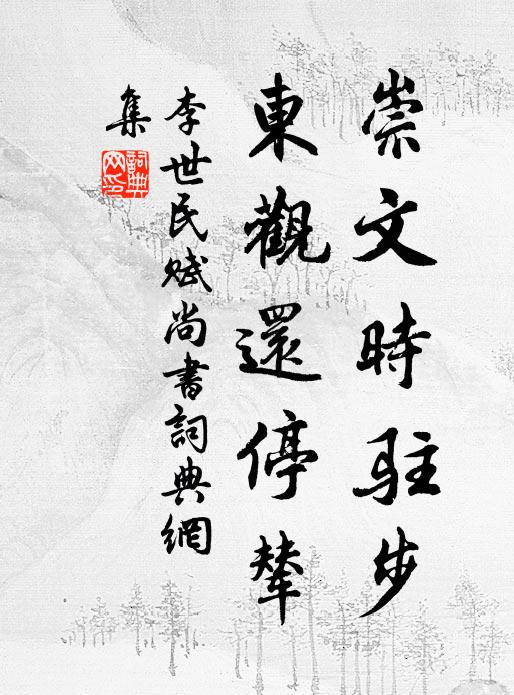 崇文時駐步
東觀還停輦
李世民賦尚書詞典網
集
詞典
网印